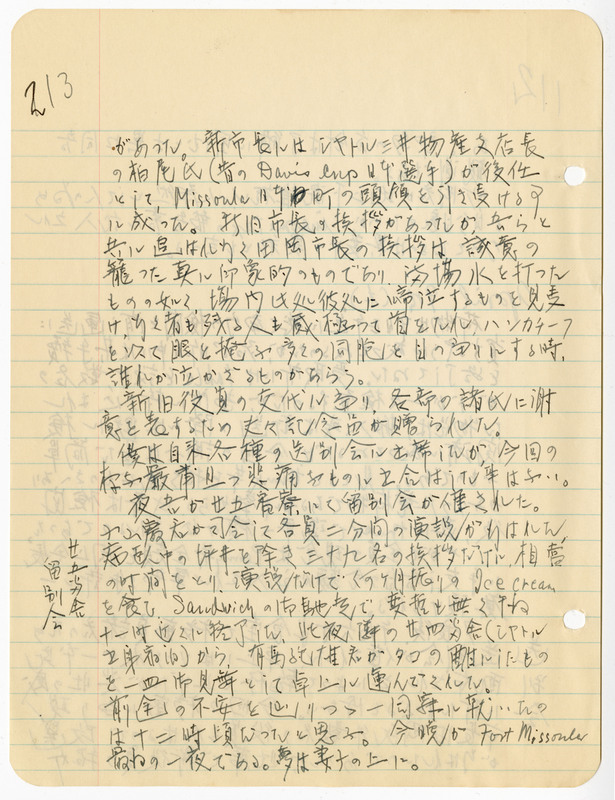 213
があった。新市長にはシヤトル三井物産支店長
の柏尾氏(昔の Davis Cup 日本選手)が後任
として Missoula 日本町の頭領を引き受ける事
に成った。新旧市長の挨拶があったが、吾らと
共に追はれ行く田岡市長の挨拶は誠意の
籠った真に印象的のものであり、満場水を打った
ものの如く、場内此処彼処に啼泣するものを見受
け、行く者も残る人も感極って首をたれ、ハンカチーフ
を以て眼を掩ふ多くの同胞を目の当りにする時、
誰れか泣かざるものがあらう。
新旧役員の交代に当り、各部の諸氏に謝
意を表するため夫々記念品が贈られた。
僕は自来各種の送別会に出席したが、今回の
様な厳粛且つ悲痛なものに出会はした事はない。
夜吾が廿五番寮にて留別会が催された。
君が司会して各員二分間の演説が行はれた。
病臥中の坪井を除き三十九名の挨拶だけに、相当
の時間をとり、演説だけで Ice cream
を食ひ、Sandwich の御馳走で
十一時近くに終了した。此夜隣の廿四号舎(シヤトル
出身宿泊)から、有馬純雄君がタコの酢にしたもの
を一皿御見舞として卓上に運んでくれた。
前途の不安を辿りつつ一同寝に就いたの
は十二時頃だったと思ふ。今晩が Fort Missoula
最后の一夜である。夢は妻子の上に。
廿五号舎
留別会